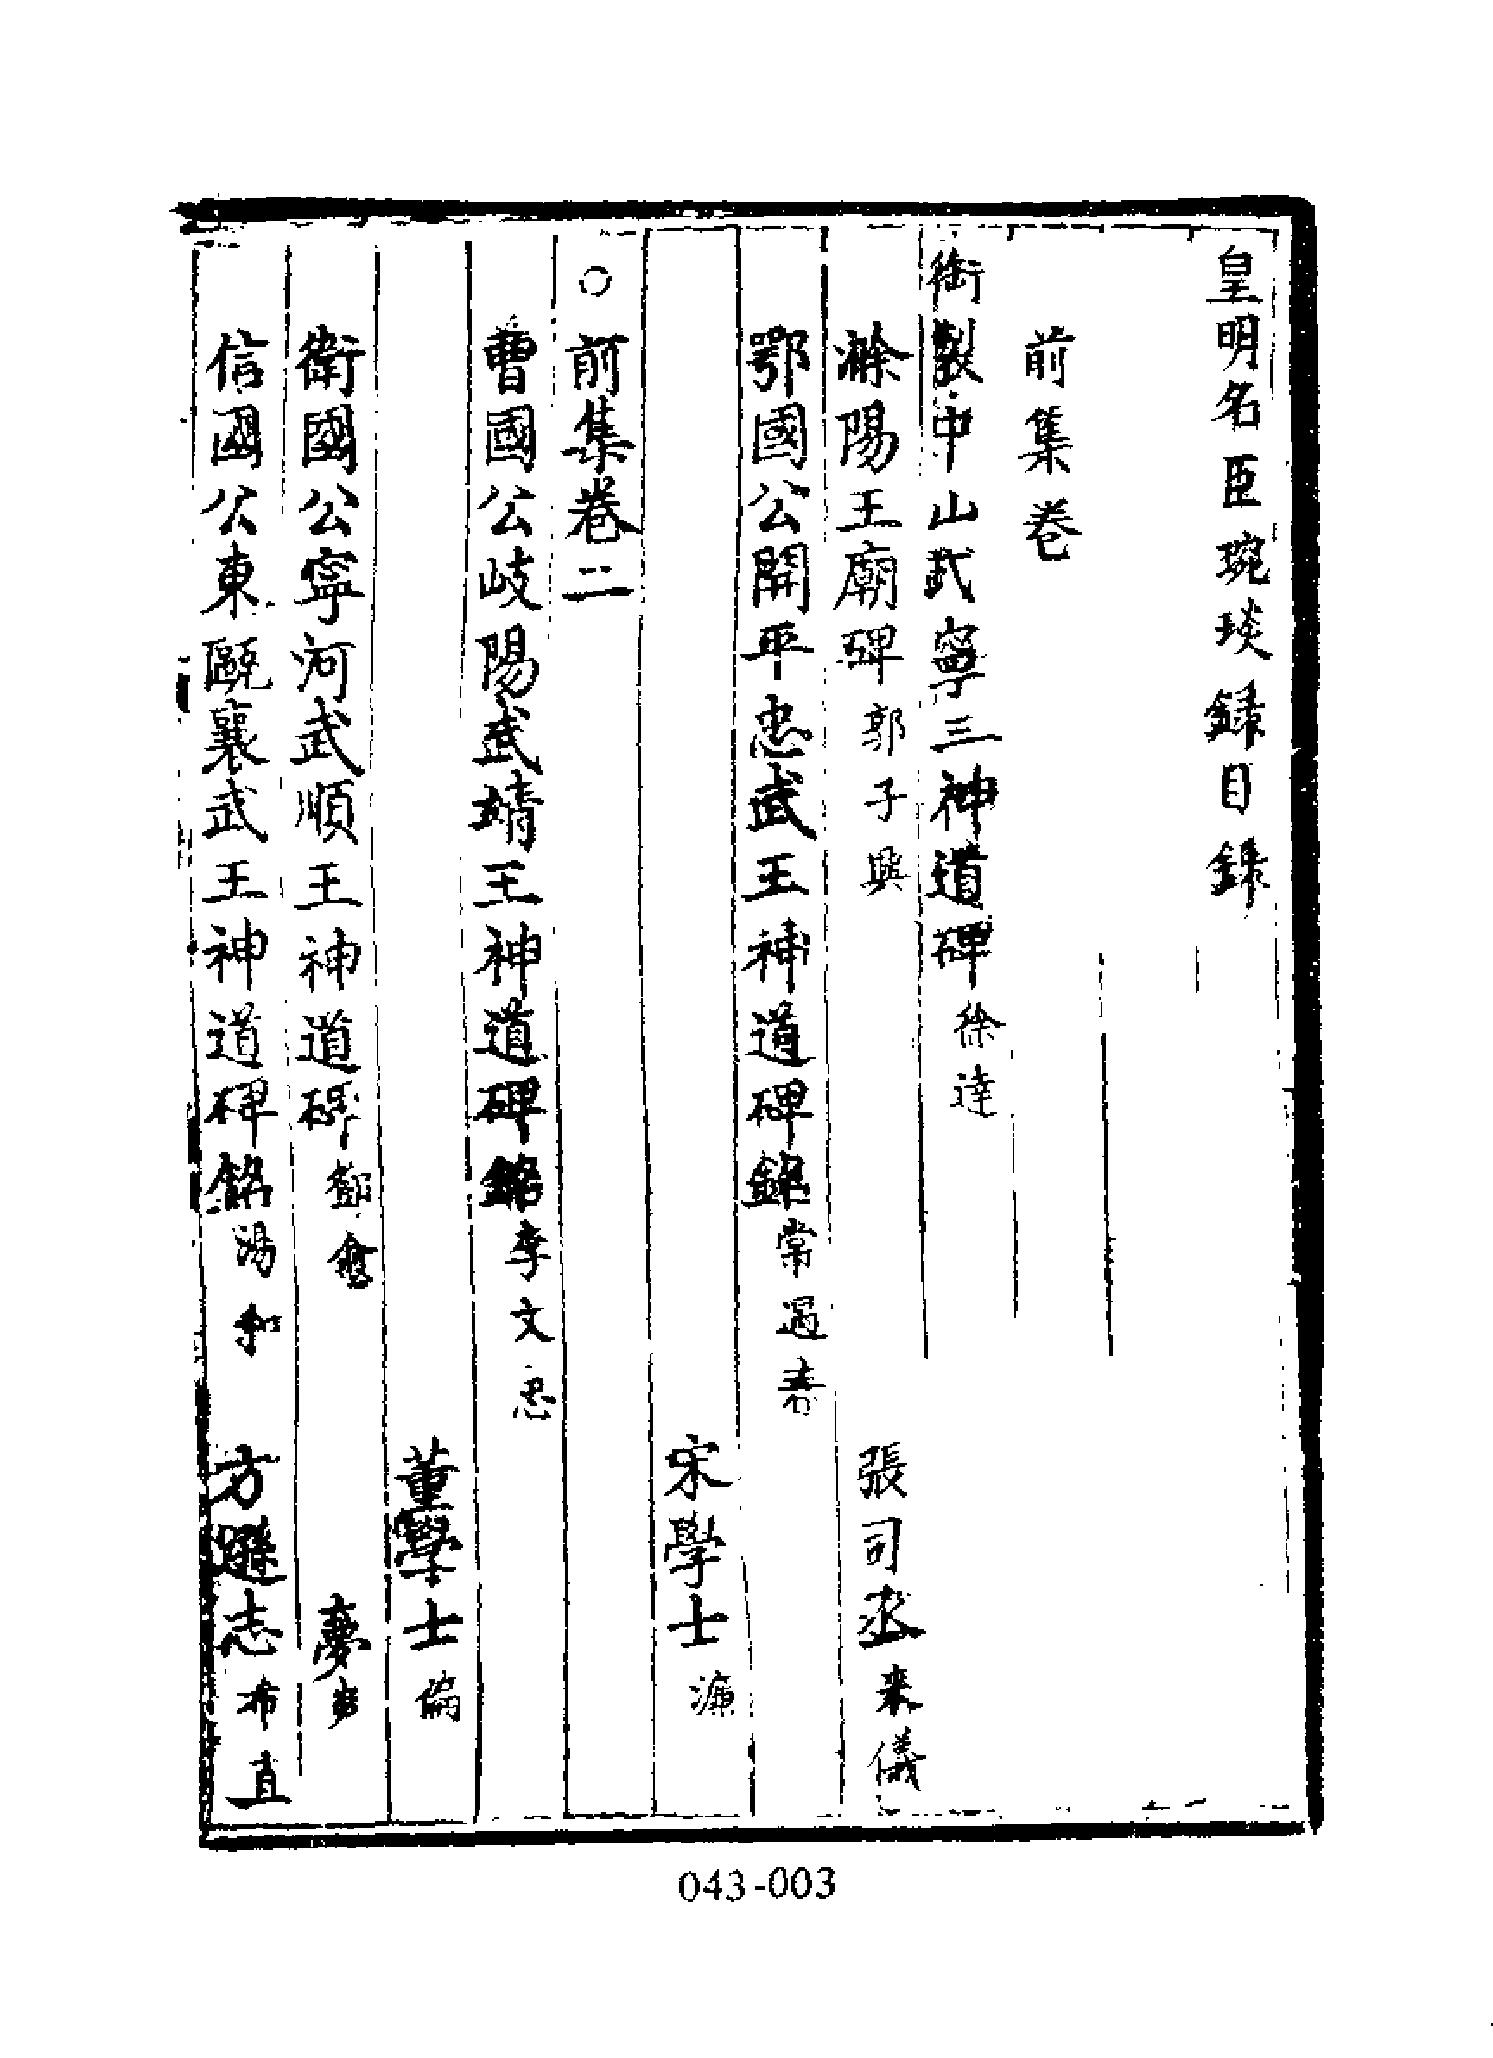 皇明名臣琬琰録目録
前集卷
御製中山武寧王神道碑徐達
滁陽王廟碑郭子興 張司丞来儀
鄂國公開平忠武王神道碑銘常遇春
宋學士濂
○前集卷二
曹國公岐陽武靖王神道碑銘李文忠
董學士倫
衛國公寧河武順王神道碑鄧愈 夢
信國公東甌襄武王神道碑銘湯和 方遜志希直
043-003